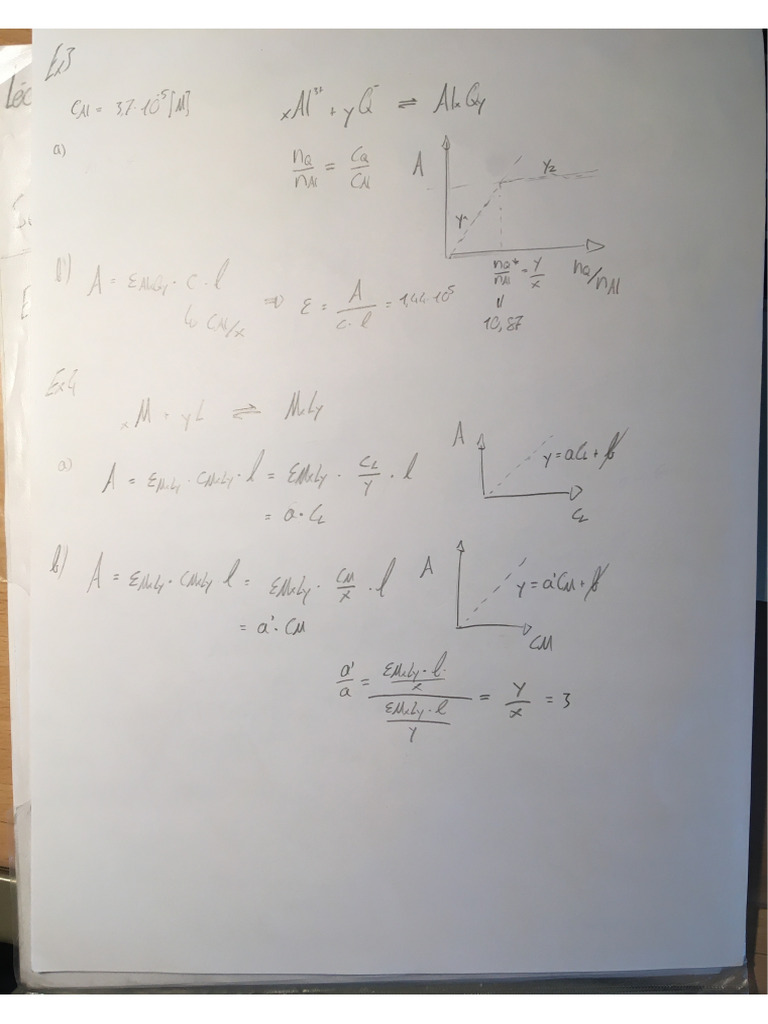 Ex3
C_Al = 3,7·10^-5 [M]
xAl^3+ + yQ^- ⇌ AlxQy
a)
n_Q/n_Al = C_Q/C_Al
A
Y
Y2
n_Q*/n_Al = y/x
n_Q/n_Al
10,87
b)
A = ε_AlxQy · c · l
↳ C_Al/x
⇒ ε = A/(c·l) = 1,44·10^5
Ex4
xM + yL ⇌ MxLy
a)
A = ε_MxLy · C_MxLy · l = ε_MxLy · C_L/y · l
= a · C_L
A
y = aC_L + b
C_L
b)
A = ε_MxLy · C_MxLy l = ε_MxLy · C_M/x · l
= a' · C_M
A
y = a'C_M + b
C_M
a'/a = (ε_MxLy · l / x)/(ε_MxLy · l / y) = y/x = 3